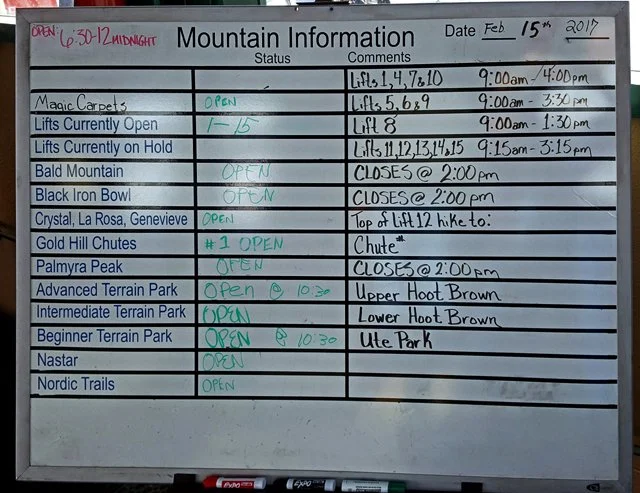 OPEN: 6:30-12 MIDNIGHT
Mountain Information
Date Feb 15th 2017
Status Comments
Lifts 1,4,7&10 9:00am-/4:00pm
Magic Carpets OPEN Lifts 5,6&9 9:00am - 3:30pm
Lifts Currently Open 1-15 Lift 8 9:00am - 1:30pm
Lifts Currently on Hold Lifts 11,12,13,14&15 9:15am - 3:15pm
Bald Mountain OPEN CLOSES @ 2:00pm
Black Iron Bowl OPEN CLOSES @ 2:00pm
Crystal, La Rosa, Genevieve OPEN Top of Lift 12 hike to:
Gold Hill Chutes #1 OPEN Chute#
Palmyra Peak OPEN CLOSES @ 2:00pm
Advanced Terrain Park OPen @ 10:30 Upper Hoot Brown
Intermediate Terrain Park OPEN Lower Hoot Brown
Beginner Terrain Park OPEN @ 10:30 Ute Park
Nastar OPEN
Nordic Trails OPEN
EXPO
EXPO